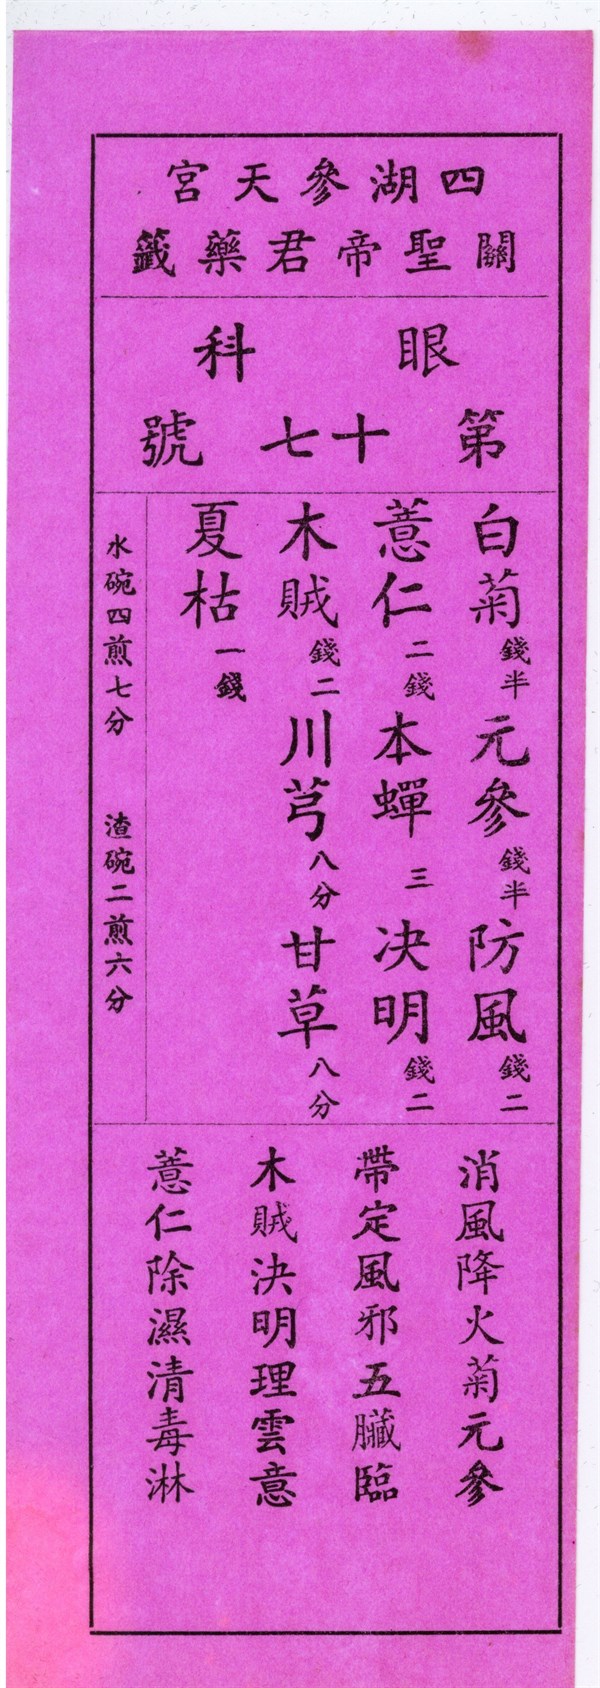 四湖參天宮
關聖帝君藥籤
眼科
第十七號
白菊錢半 元參錢半 防風錢二
薏仁二錢 本蟬三 決明錢二
木賊錢二 川芎八分 甘草八分
夏枯一錢
水碗四煎七分 渣碗二煎六分
消風降火菊元參
帶定風邪五臟臨
木賊決明理雲意
薏仁除濕清毒淋